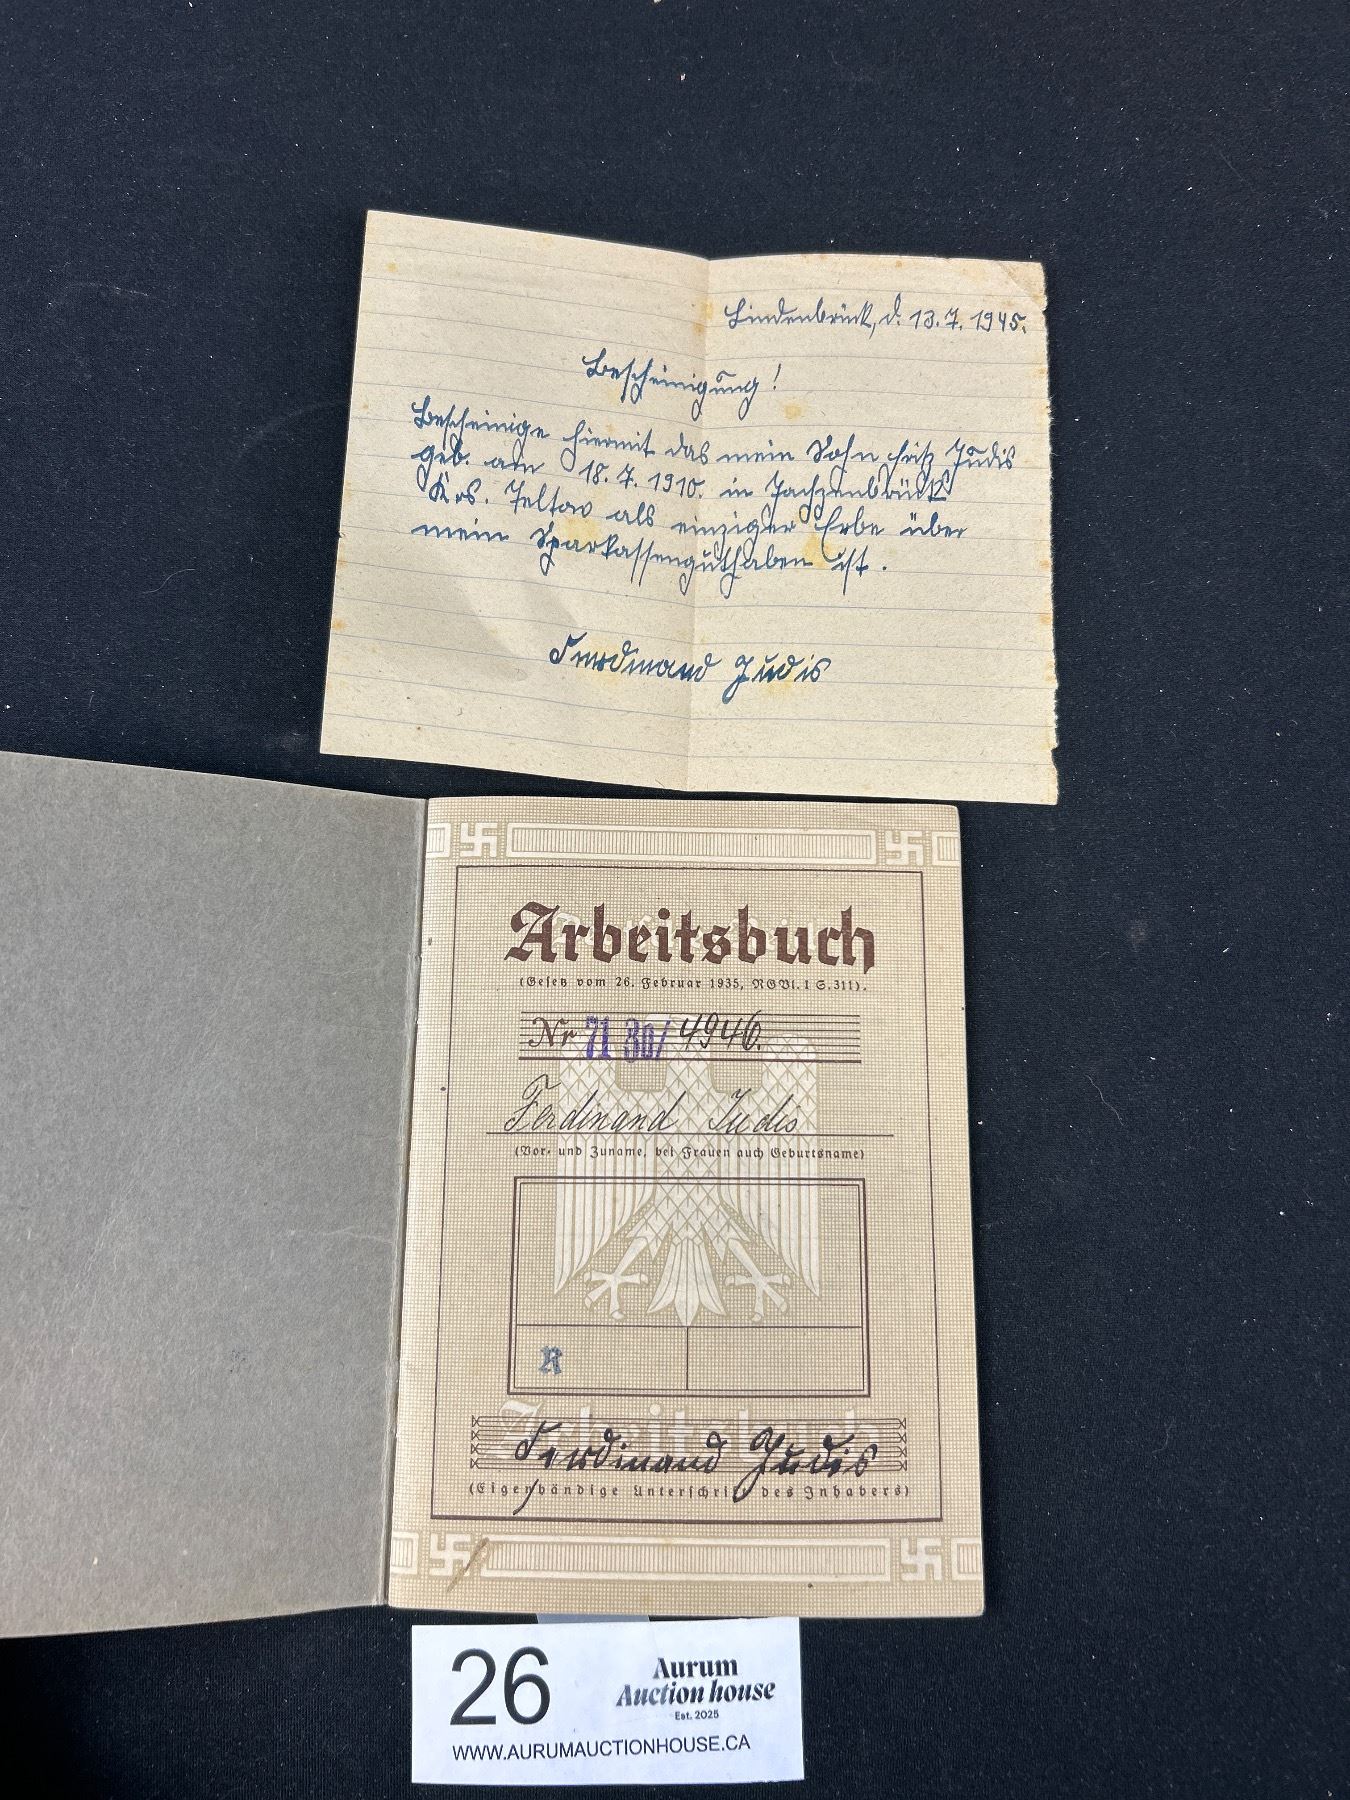 Lindenbrück, d. 13.7.1945.
Bescheinigung!
Bescheinige hiermit das mein Sohn Fritz Judis
geb. am 18.7.1910. in Jachzenbrück
Krs. Teltow als einziger Erbe über
mein Sparkassenguthaben ist.
Ferdinand Judis
Arbeitsbuch
(Gesetz vom 26. Februar 1935, RGBl. I S. 311).
Nr 71 30/ 4946.
Ferdinand Judis
(Vor- und Zuname, bei Frauen auch Geburtsname)
R
Arbeitsbuch
Ferdinand Judis
(Eigenhändige Unterschrift des Inhabers)
26
Aurum
Auction house
Est. 2025
WWW.AURUMAUCTIONHOUSE.CA